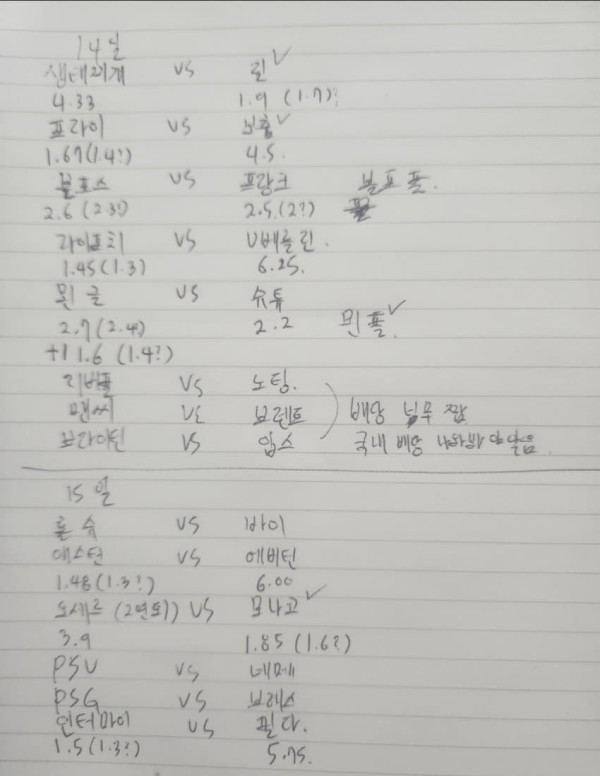 14일
생테티엔 vs 린 ✓
4.33 1.9 (1.7)?
프라이 vs 보훔 ✓
1.67(1.4?) 4.5.
볼프스 vs 프랑크 볼프 풀.
2.6 (2.3?) 2.5.(2?)
라이프치 vs U베를린.
1.45(1.3) 6.25.
묀글 vs 슈튜
2.7(2.4) 2.2 묀 플. ✓
+1 1.6 (1.4?)
리버풀 vs 노팅.
맨씨 vs 브렌트 배당 넘무 짬
브라이턴 vs 입스 국내 배당 나와봐야 알음.
15일
홀슈 vs 바이
애스턴 vs 에버턴
1.48(1.3?) 6.00
오세르 (2연토)) vs 모나코 ✓
3.9 1.85 (1.6?)
PSV vs 네메
PSG vs 브레스
인터마이 vs 필라.
1.5(1.3?) 5.75.